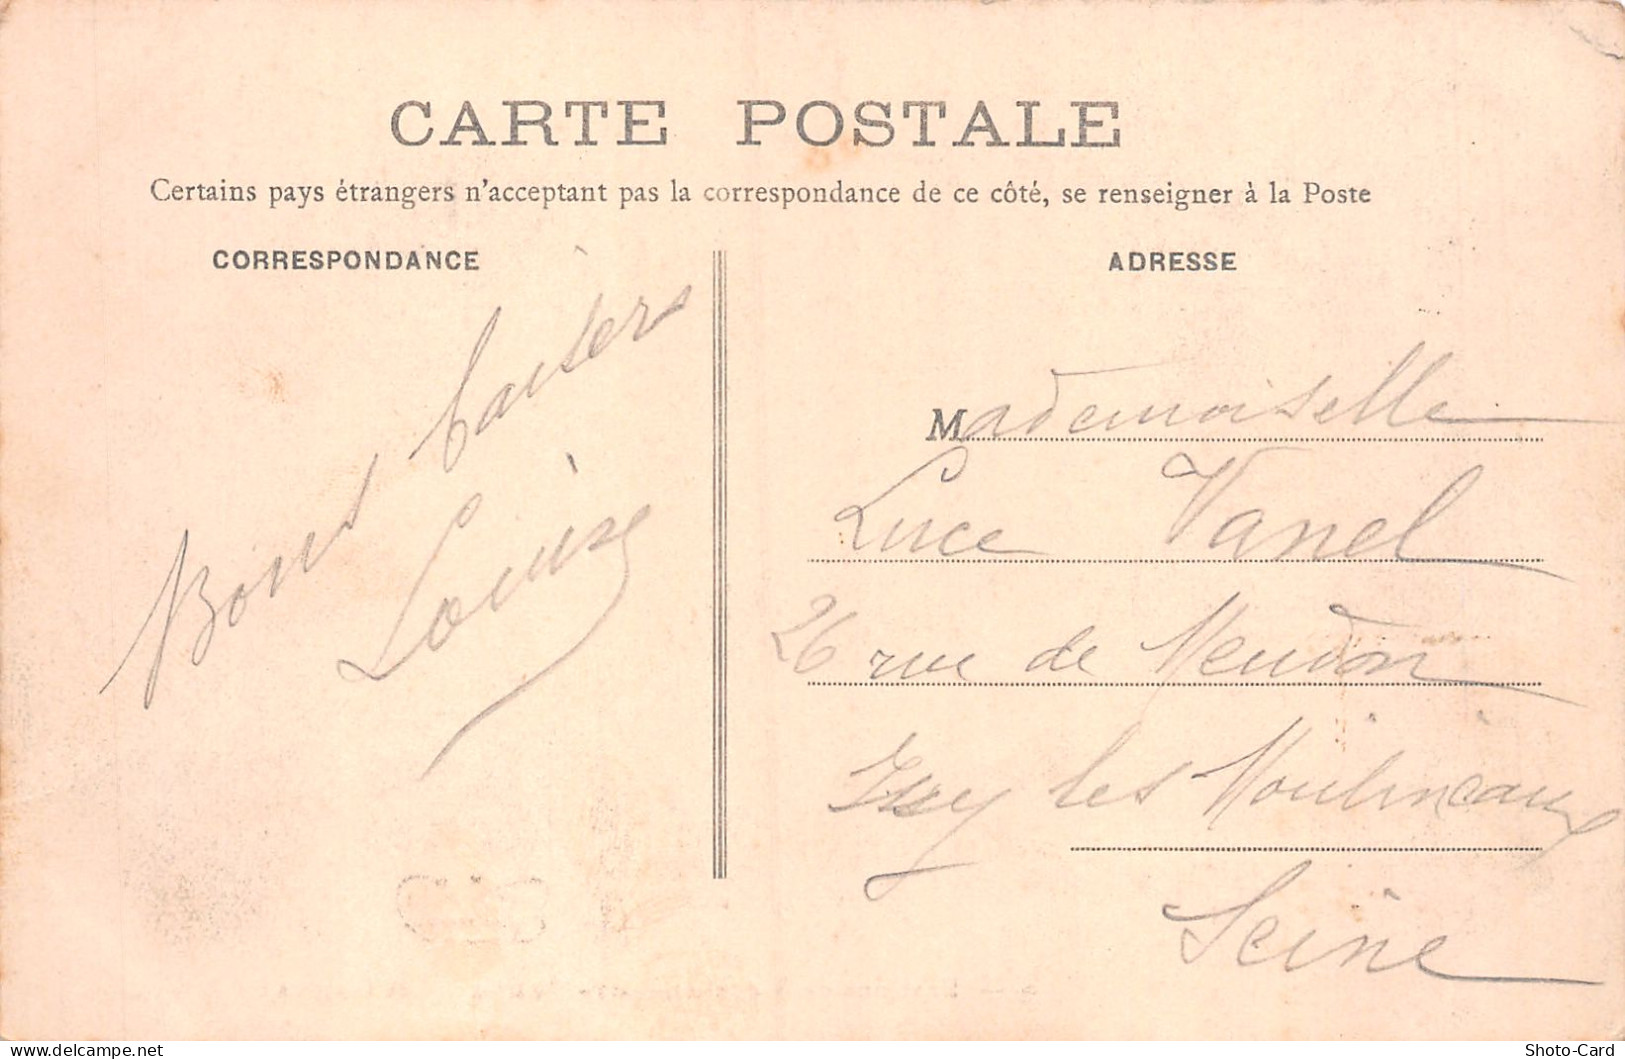 CARTE POSTALE
Certains pays étrangers n'acceptant pas la correspondance de ce côté, se renseigner à la Poste
CORRESPONDANCE
Bons baisers
Louise
ADRESSE
Mademoiselle
Luce Vanel
26 rue de Meudon
Issy les Moulineaux
Seine
delcampe.net
Shoto-Card